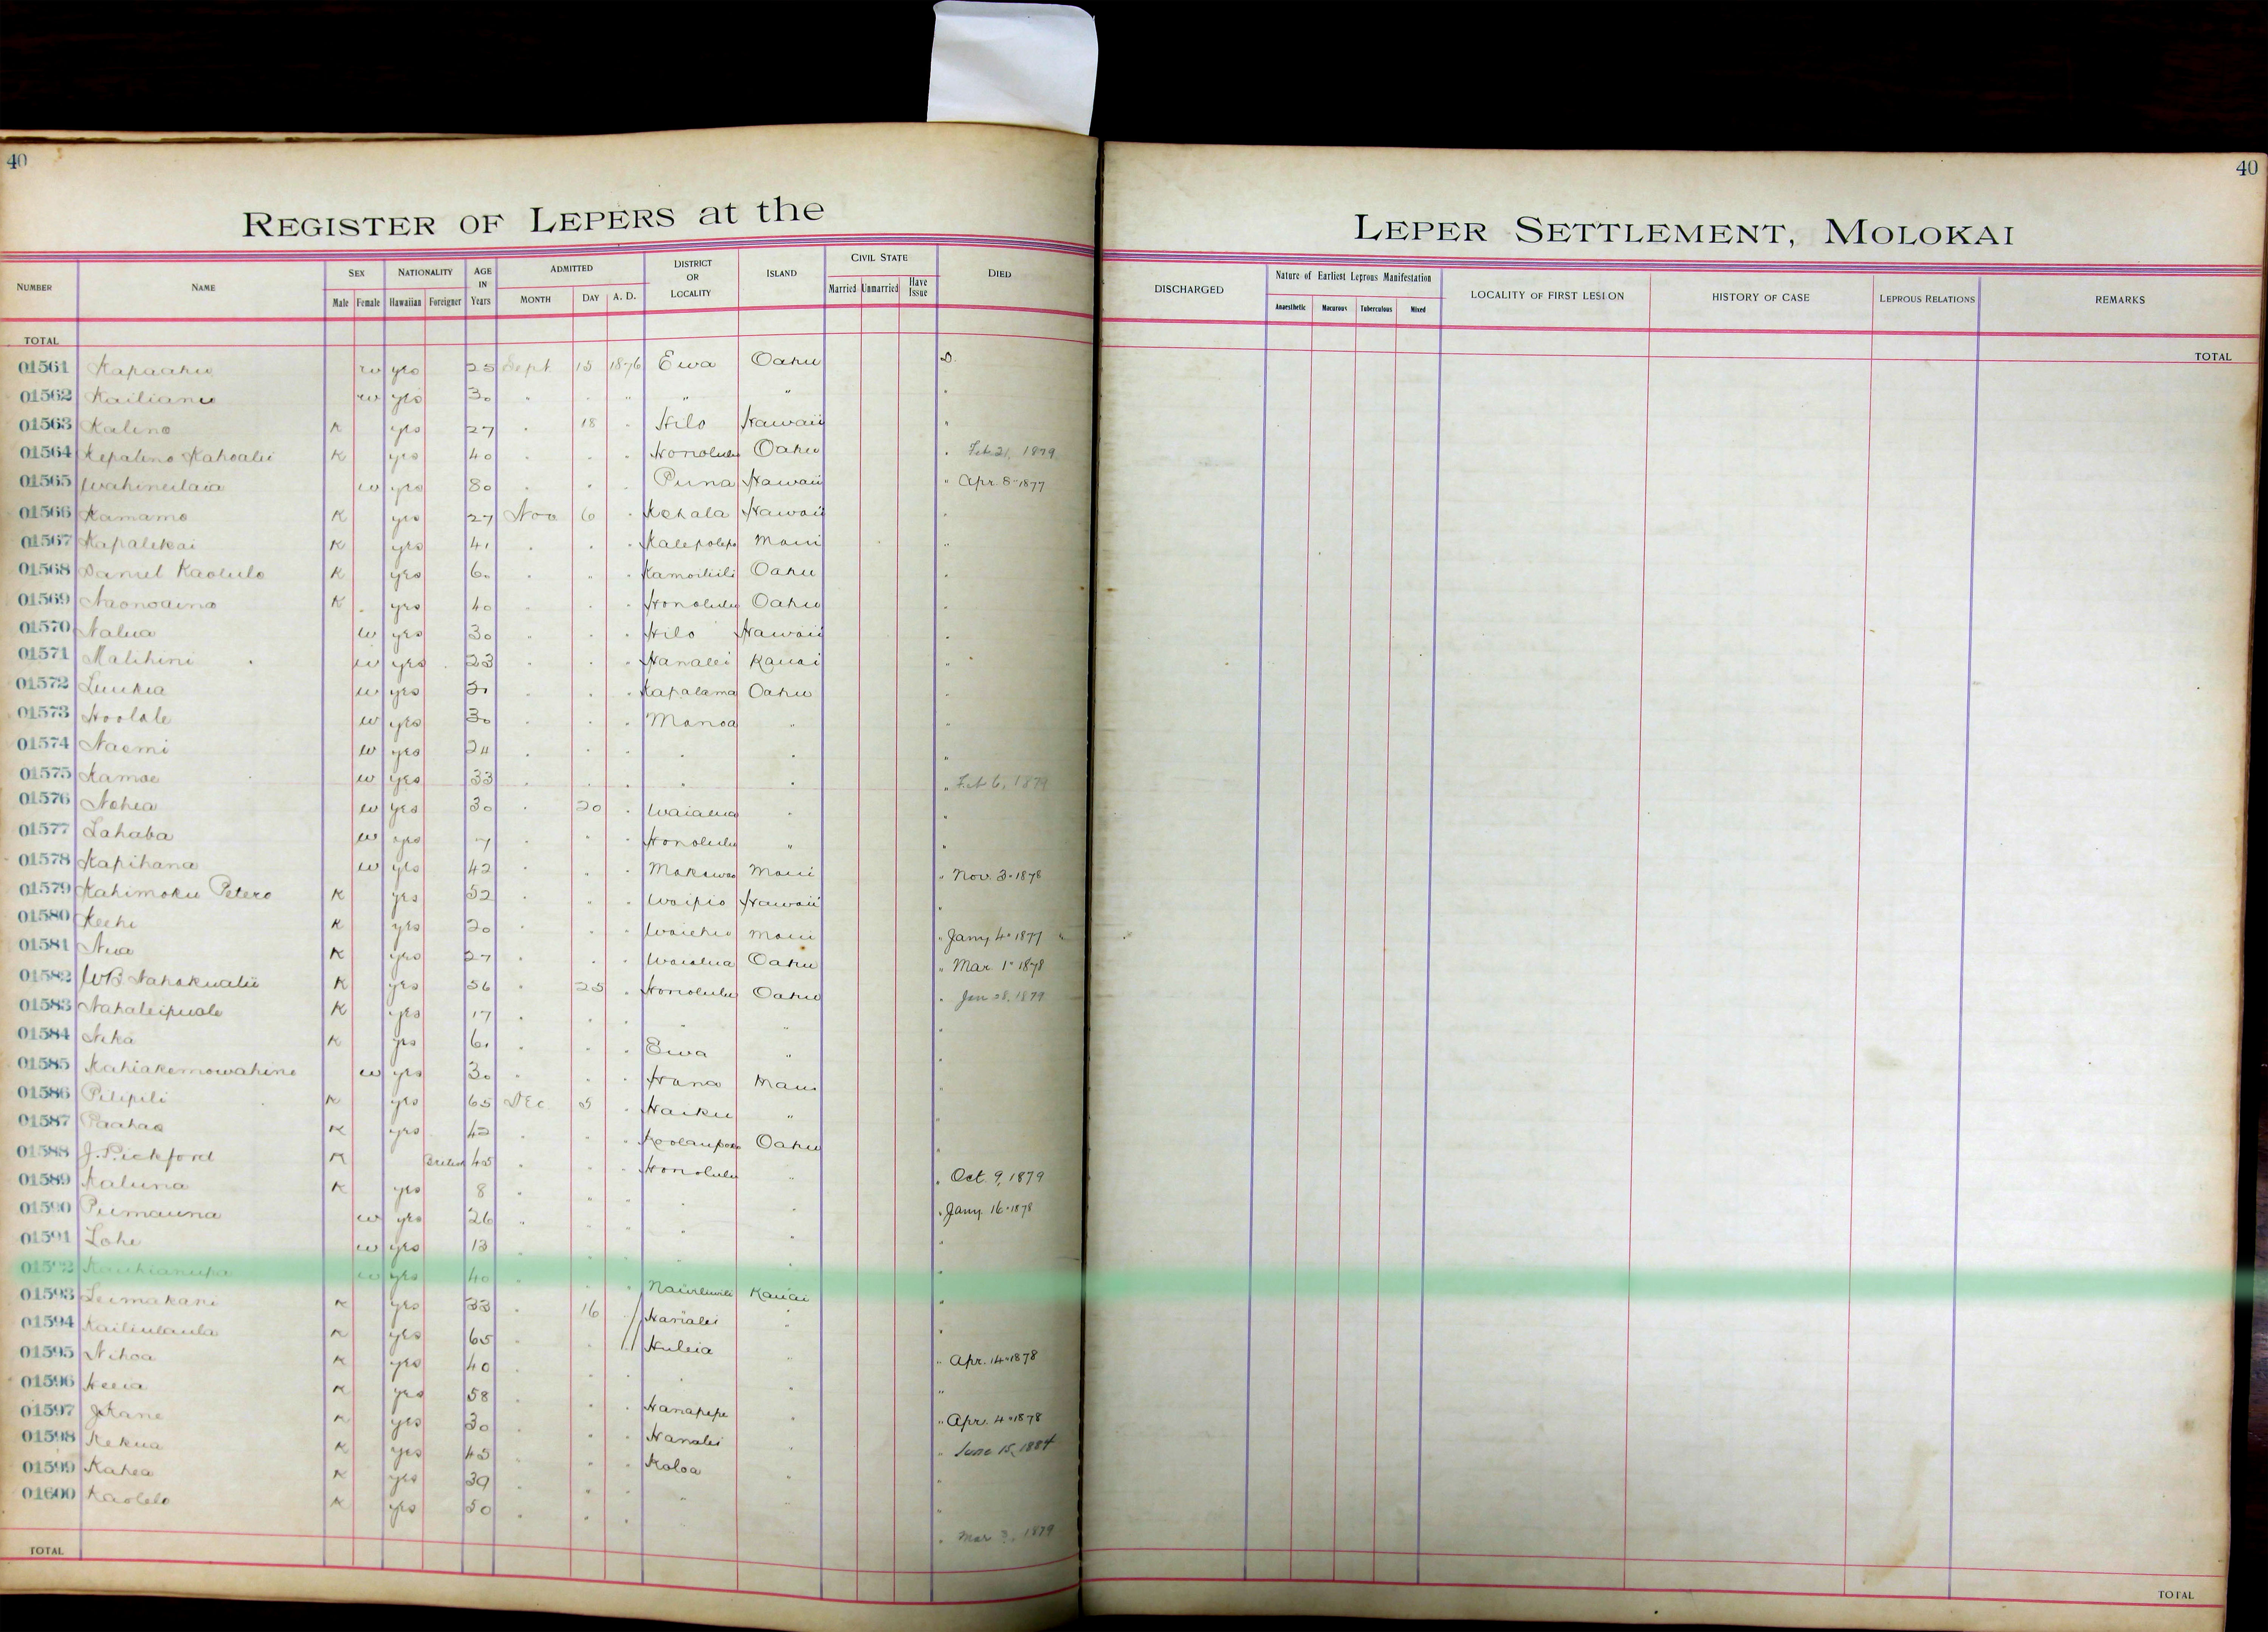 40
40
REGISTER OF LEPERS at the
LEPER SETTLEMENT, MOLOKAI
NUMBER NAME SEX Male Female NATIONALITY Hawaiian Foreigner AGE IN Years ADMITTED MONTH DAY A. D. DISTRICT OR LOCALITY ISLAND CIVIL STATE Married Unmarried Have Issue DIED
DISCHARGED Nature of Earliest Leprous Manifestation Anaesthetic Macurous Tuberculous Mixed LOCALITY OF FIRST LESION HISTORY OF CASE LEPROUS RELATIONS REMARKS
TOTAL
TOTAL
01561 Kapaahu w yes 25 Sept 15 1876 Ewa Oahu D.
01562 Kailianu w yes 30 " " " " " "
01563 Kalino K yes 27 " 18 " Hilo Hawaii "
01564 Kepalino Kahoalii K yes 40 " " " Honolulu Oahu " Feb 21, 1879
01565 Wahineilaia w yes 80 " " " Puna Hawaii " Apr. 8-1877
01566 Kamamo K yes 27 Nov 6 " Kohala Hawaii "
01567 Kapalekai K yes 41 " " " Kalepolepo Maui "
01568 Daniel Kaolulo K yes 60 " " " Kamoiliili Oahu "
01569 Naonoaina K yes 40 " " " Honolulu Oahu "
01570 Nalua w yes 30 " " " Hilo Hawaii "
01571 Malihini w yes 23 " " " Hanalei Kauai "
01572 Luukia w yes 21 " " " Kapalama Oahu "
01573 Hoolale w yes 30 " " " Manoa " "
01574 Naomi w yes 24 " " " " " "
01575 Kamae w yes 33 " " " " " " Feb 6, 1879
01576 Nohea w yes 30 " 20 " Waialua " "
01577 Lahaba w yes 7 " " " Honolulu " "
01578 Kapihana w yes 42 " " " Makawao Maui " Nov. 3-1878
01579 Kahimoku Petero K yes 52 " " " Waipio Hawaii "
01580 Keehi K yes 20 " " " Waiehu Maui " Jany 4-1877 "
01581 Niua K yes 27 " " " Waialua Oahu " Mar. 1-1878
01582 WB Nahakualii K yes 56 " 25 " Honolulu Oahu " Jan 28, 1879
01583 Nahaleipuale K yes 17 " " " " " "
01584 Nika K yes 61 " " " Ewa " "
01585 Kahiakemowahine w yes 30 " " " Hana Maui "
01586 Pilipili K yes 65 Dec 5 " Haiku " "
01587 Paahao K yes 42 " " " Koolaupoko Oahu "
01588 J. Pickford K British 45 " " " Honolulu " " Oct. 9, 1879
01589 Kaluna K yes 8 " " " " " " Jany 16-1878
01590 Puimauna w yes 26 " " " " " "
01591 Lohe w yes 13 " " " " " "
01592 w yes 40 " " " Nawiliwili Kauai "
01593 Leimakani K yes 33 " 16 " Hanalei " "
01594 Kailiulaula K yes 65 " " Huleia " " Apr. 14-1878
01595 Nihoa K yes 40 " " " " "
01596 Heeia K yes 58 " " " Hanapepe " " Apr. 4-1878
01597 J Kane K yes 30 " " " Hanalei " " June 15, 1884
01598 Kekua K yes 45 " " " Koloa " "
01599 Kahea K yes 39 " " " " " "
01600 Kaolelo K yes 50 " " " " Mar 3, 1879
TOTAL
TOTAL